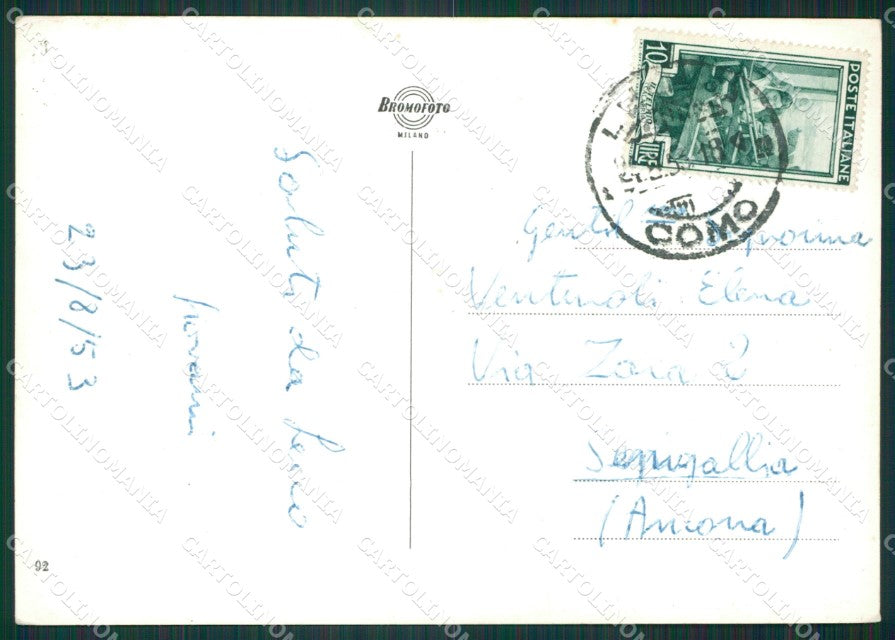 BROMOFOTO
MILANO
Saluti da Lecco
Giovanni
23/8/53
92
10
LIRE
POSTE ITALIANE
COMO
Ventinoli Elena
Via Zara 2
Senigallia
(Ancona)
CARTOLINOMANIA